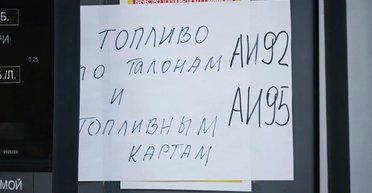 ТОПЛИВО
ПО ТАЛОНАМ
И
ТОПЛИВНЫМ
КАРТАМ
АИ92
АИ95
Б.
0.25
Б./Л.
МОЙ